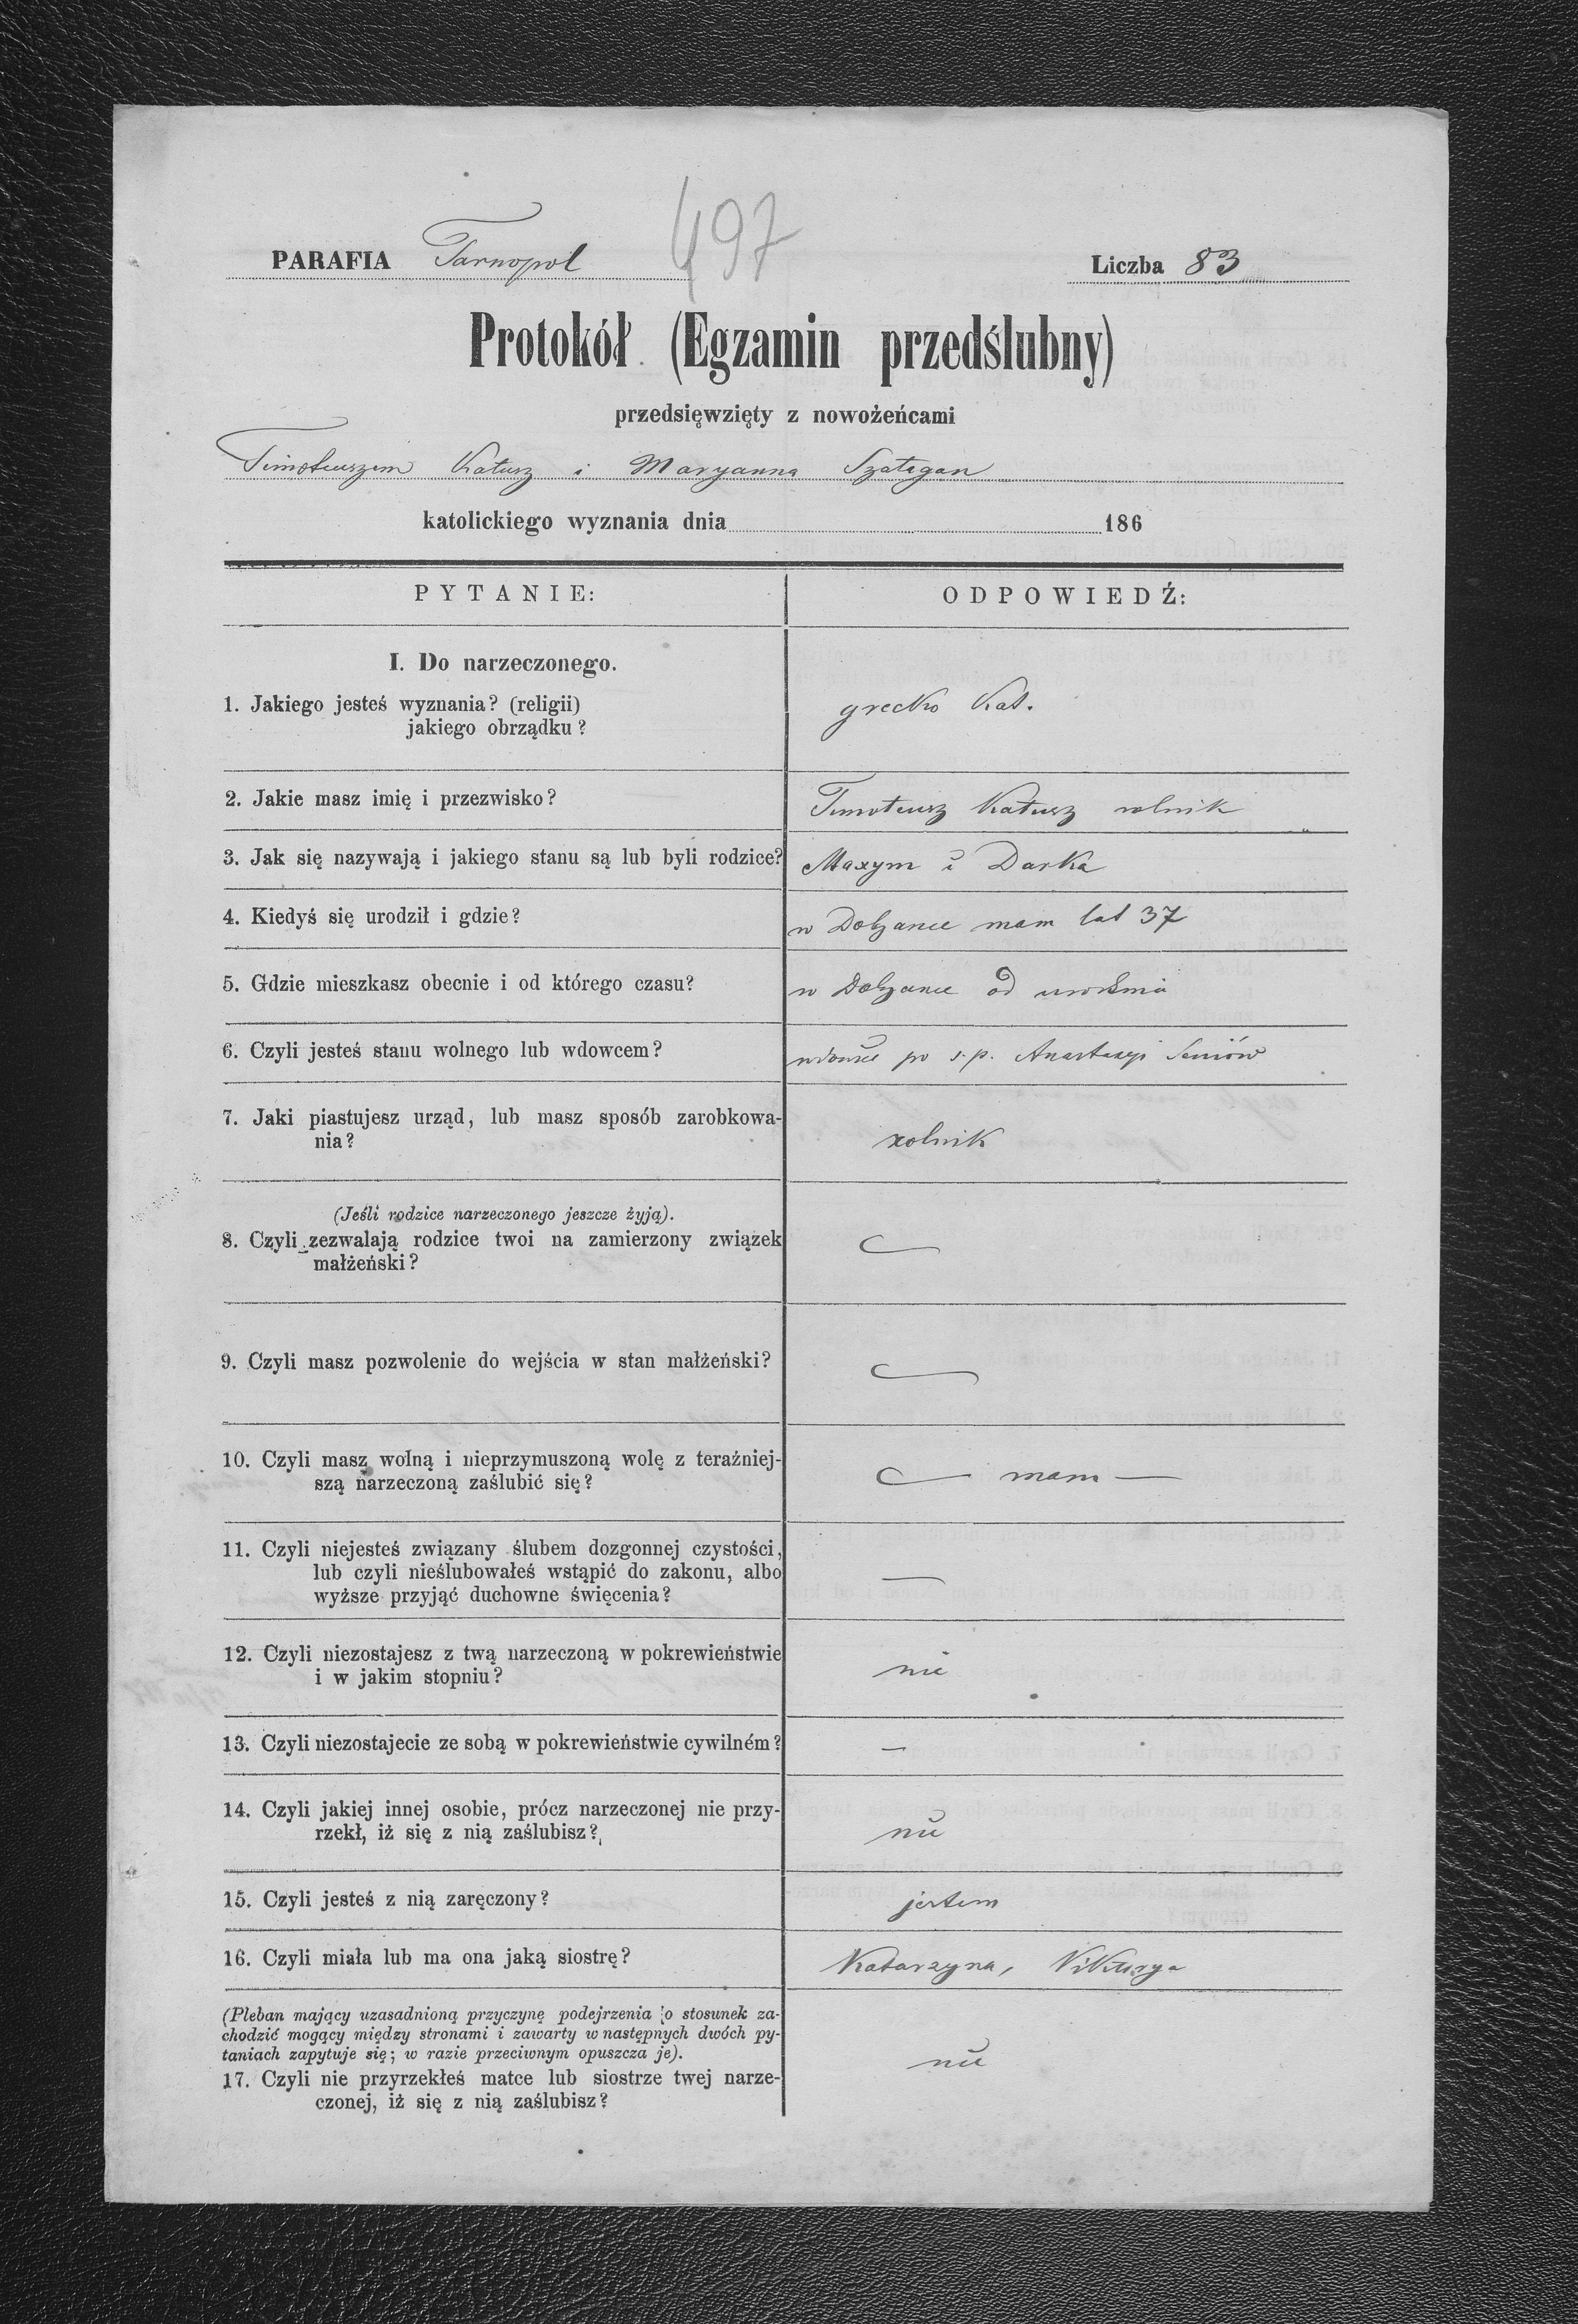 497
PARAFIA Tarnopol
Liczba 83
Protokół (Egzamin przedślubny)
przedsięwzięty z nowożeńcami
Timoteuszem Katusz i Maryanna Szatagan
katolickiego wyznania dnia 186
PYTANIE:
ODPOWIEDŹ:
I. Do narzeczonego.
1. Jakiego jesteś wyznania? (religii)
jakiego obrządku?
grecko Kat.
2. Jakie masz imię i przezwisko?
Timoteusz Katusz rolnik
3. Jak się nazywają i jakiego stanu są lub byli rodzice?
Maxym i Darka
4. Kiedyś się urodził i gdzie?
w Dolzance mam lat 37
5. Gdzie mieszkasz obecnie i od którego czasu?
w Dolzance od
6. Czyli jesteś stanu wolnego lub wdowcem?
po s.p. Anastazyi Seniów
7. Jaki piastujesz urząd, lub masz sposób zarobkowa-
nia?
rolnik
(Jeśli rodzice narzeczonego jeszcze żyją).
8. Czyli zezwalają rodzice twoi na zamierzony związek
małżeński?
9. Czyli masz pozwolenie do wejścia w stan małżeński?
10. Czyli masz wolną i nieprzymuszoną wolę z teraźniej-
szą narzeczoną zaślubić się?
— mam —
11. Czyli niejesteś związany ślubem dozgonnej czystości,
lub czyli nieślubowałeś wstąpić do zakonu, albo
wyższe przyjąć duchowne święcenia?
—
12. Czyli niezostajesz z twą narzeczoną w pokrewieństwie
i w jakim stopniu?
nie
13. Czyli niezostajecie ze sobą w pokrewieństwie cywilném?
–
14. Czyli jakiej innej osobie, prócz narzeczonej nie przy-
rzekł, iż się z nią zaślubisz?
nie
15. Czyli jesteś z nią zaręczony?
jestem
16. Czyli miała lub ma ona jaką siostrę?
Katarzyna, Wiktorya
(Pleban mający uzasadnioną przyczynę podejrzenia o stosunek za-
chodzić mogący między stronami i zawarty w następnych dwóch py-
taniach zapytuje się; w razie przeciwnym opuszcza je).
17. Czyli nie przyrzekłeś matce lub siostrze twej narze-
czonej, iż się z nią zaślubisz?
nie